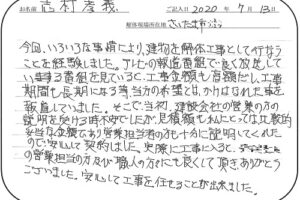 お名前 吉村孝義 ご記入日 2020年7月13日
解体現場所在地 さいたま市
今回、いろいろな事情により、建物を解体工事として行なう
ことを経験しました。テレビの報道番組で良く放送して
いまする番組を見ていると、工事金額も高額だし、工事
期間も長期になる等当方の希望とはかけはなれた事を
報道していました。そこで当初、建設会社の営業の方の
説明を受ける時不安でしたが、見積額も私にとっては比較的
妥当な金額であり営業担当者の方も十分に説明してくれた
ので安心して契約しました。実際に工事に入ると、
の営業担当の方及び職人の方々にも良くして頂きありがとう
ございました。安心して工事を任せることが出来ました。